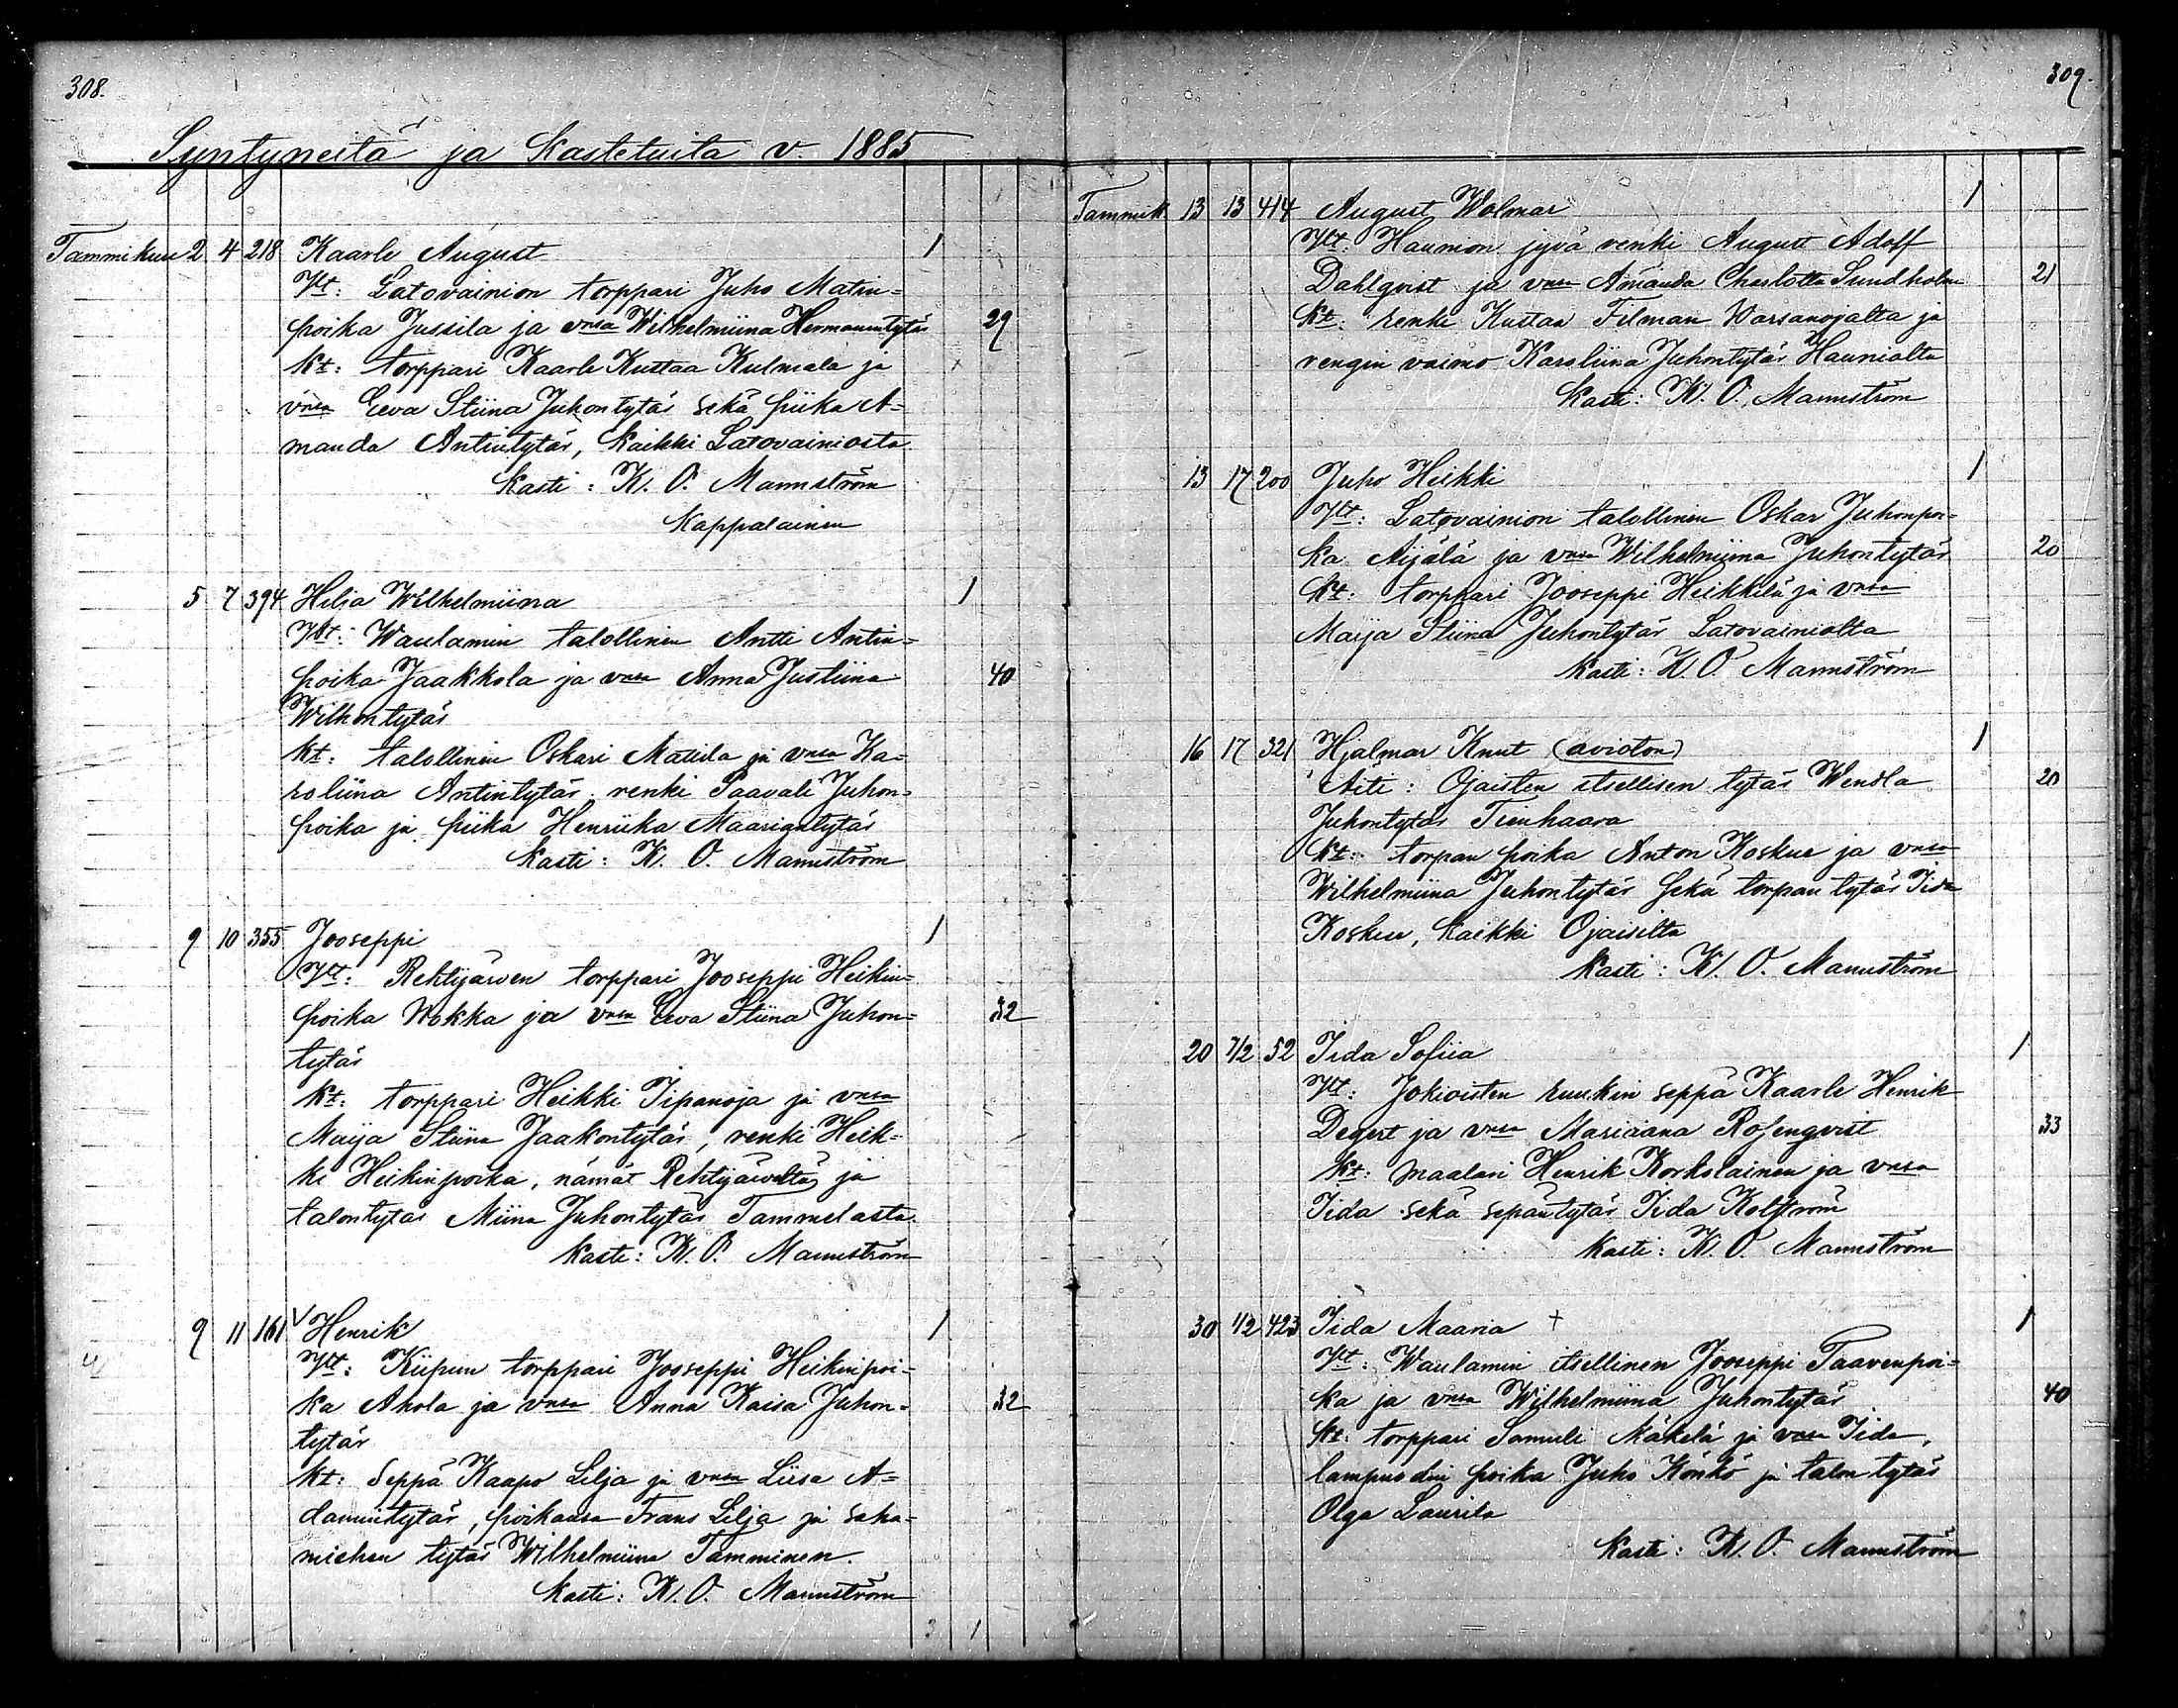 308.
Syntyneitä ja Kastetuita v. 1885
Tammikuu 2 4 218 Kaarle August 1
Vht: Latovainion torppari Juho Matin=
poika Jussila ja vmsa Wilhelmiina Hermannintytär 29
Kt: torppari Kaarle Kustaa Kulmala ja
vmsa Eeva Stiina Juhontytär sekä piika A=
manda Antintytär, kaikki Latovainiosta.
Kasti: K. O. Mannström
Kappalainen
5 7 394 Hilja Wilhelmiina 1
Vht: Waulamin talollinen Antti Antin=
poika Jaakkola ja vmsa Anna Justiina 40
Wilhontytär
Kt: talollinen Oskari Mattila ja vmsa Ka=
roliina Antintytär. renki Paavali Juhon=
poika ja piika Henriika Maariantytär
Kasti: K. O. Mannström
9 10 355 Jooseppi 1
Vht: Rehtijärven torppari Jooseppi Heikin=
poika Nokka ja vmsa Eeva Stiina Juhon= 32
tytär
Kt: torppari Heikki Iipanoja ja vmsa
Maija Stiina Jaakontytär, renki Heik=
ki Heikinpoika, nämät Rehtijärveltä, ja
talontytär Miina Juhontytär Tammelasta.
Kasti: K. O. Mannström
9 11 161 Henrik 1
Vht: Kiipun torppari Jooseppi Heikinpoi=
ka Ahola ja vmsa Anna Kaisa Juhon= 32
tytär
Kt: Seppä Kaapo Lilja ja vmsa Liisa A=
damintytär, poikansa Frans Lilja ja saha=
miehen tytär Wilhelmiina Tamminen.
Kasti: K. O. Mannström
3 1
309.
Tammik 13 13 414 August Wolmar 1
Vht. Haunion jyvä renki August Adolf
Dahlqvist ja vmsa Amanda Charlotta Sundholm 21
Kt: renki Kustaa Felman Warsanojalta ja
rengin vaimo Karoliina Juhontytär Haunialta
Kasti: K. O. Mannström
13 17 200 Juho Heikki 1
Vht: Latovainion talollinen Oskar Juhonpoi=
ka Äijälä ja vmsa Wilhelmiina Juhontytär 20
Kt: torppari Jooseppi Heikkilä ja vmsa
Maija Stiina Juhontytär Latovainiolta
Kasti: K. O. Mannström
16 17 321 Hjalmar Knut (avioton) 1
Äiti: Ojaisten itsellisen tytär Wendla 20
Juhontytär Tienhaara
Kt: torpan poika Anton Koskue ja vmsa
Wilhelmiina Juhontytär sekä torpan tytär Iida
Koskue, kaikki Ojaisilta
Kasti: K. O. Mannström
20 7/2 52 Iida Sofiia 1
Vht: Jokioisten ruukin seppä Kaarle Henrik
Degert ja vmsa Mariaana Rosenqvist 33
Kt: maalari Henrik Korkolainen ja vmsa
Iida sekä sepäntytär Iida Kolström
Kasti: K. O. Mannström
30 1/2 423 Iida Maaria + 1
Vht: Waulamin itsellinen Jooseppi Taavenpoi=
ka ja vmsa Wilhelmiina Juhontytär 40
Kt: torppari Samuli Mäkelä ja vmsa Iida,
lampuodin poika Juho Könkö ja talon tytär
Olga Laurila
Kasti: K. O. Mannström